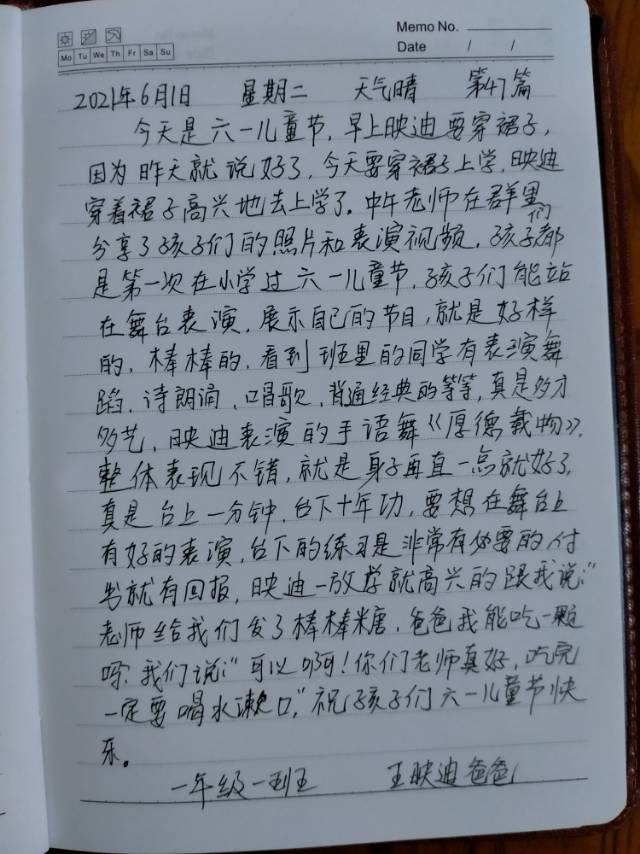 Memo No.
Mo Tu We Th Fr Sa Su
Date / /
2021年6月1日 星期二 天气晴 第47篇
今天是六一儿童节,早上映迪要穿裙子,
因为昨天就说好了,今天要穿裙子上学,映迪
穿着裙子高兴地去上学了。中午老师在群里
分享了孩子们的照片和表演视频,孩子们都
是第一次在小学过六一儿童节,孩子们能站
在舞台表演,展示自己的节目,就是好样
的,棒棒的,看到班里的同学有表演舞
蹈,诗朗诵、唱歌,背诵经典的等等,真是多才
多艺,映迪表演的手语舞《厚德载物》,
整体表现不错,就是身子再直一点就好了,
真是台上一分钟,台下十年功,要想在舞台上
有好的表演,台下的练习是非常有必要的付
出就有回报,映迪一放学就高兴的跟我说:“
老师给我们发了棒棒糖,爸爸我能吃一颗
吗?我们说:“可以啊!你们老师真好,吃完
一定要喝水漱口,”祝孩子们六一儿童节快
乐。
一年级一班 王映迪爸爸